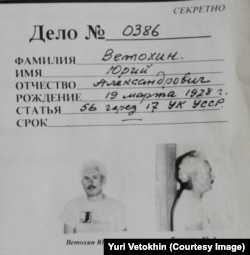 СЕКРЕТНО
Дело № 0386
ФАМИЛИЯ Ветохин.
ИМЯ Юрий
ОТЧЕСТВО Александрович
РОЖДЕНИЕ 19 марта 1928 г.
СТАТЬЯ 56 через 17 УК УССР.
СРОК —
Ветохин Ю
Yuri Vetokhin (Courtesy Image)